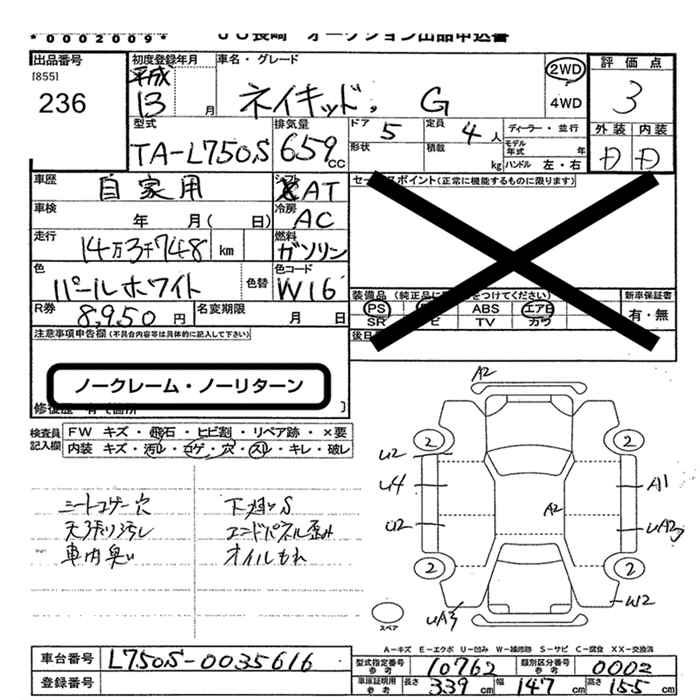 *0002009* JU長崎 オークション出品申込書
出品番号
[855]
236
初度登録年月 平成 13 月
車名・グレード
ネイキッド. G
2WD
4WD
評価点
3
外装 内装
D D
型式
TA-L750S
排気量
659 cc
ドア 5
定員 4 人
形状
積載 kg
ディーラー・並行
モデル年式 年
ハンドル 左・右
車歴 自家用
シフト AT
車検 年 月( 日)
冷房 AC
走行 14万3千748 km
燃料 ガソリン
色 パールホワイト 色替
色コード W16
R券 8,950 円
名変期限 月 日
セールスポイント(正常に機能するものに限ります)
装備品(純正品に をつけてください)
PS ABS エアB
SR TV カワ
新車保証書
有・無
後日
注意事項申告欄(不具合内容等は具体的に記入して下さい)
ノークレーム・ノーリターン
修復歴 有
検査員記入欄
FW キズ・飛石・ヒビ割・リペア跡・×要
内装 キズ・汚レ・コゲ・穴・スレ・キレ・破レ
シートコゲ一穴
天張り汚レ
車内臭い
下廻りS
エンドパネル歪み
オイルもれ
A2
2 2
U2
U4 A1
A2
U2 UA2
2 2
W2
UA3
スペア
A-キズ E-エクボ U-凹み W-補修跡 S-サビ C-腐食 XX-交換済
車台番号 L750S-0035616
登録番号
型式指定番号 参考 10762
類別区分番号 参考 0002
車庫証明用 参考 長さ 339 cm 幅 147 cm 高さ 155 cm